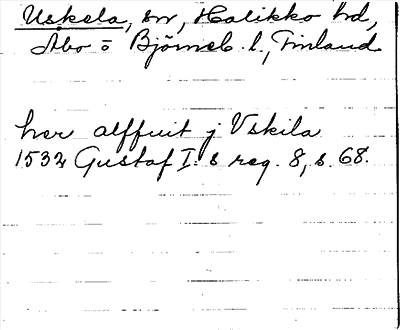 Uskela, sn, Halikko hd,
Åbo o Björneb. l., Finland
her alffuit j Vskila
1532 Gustaf I:s reg. 8, s. 68.